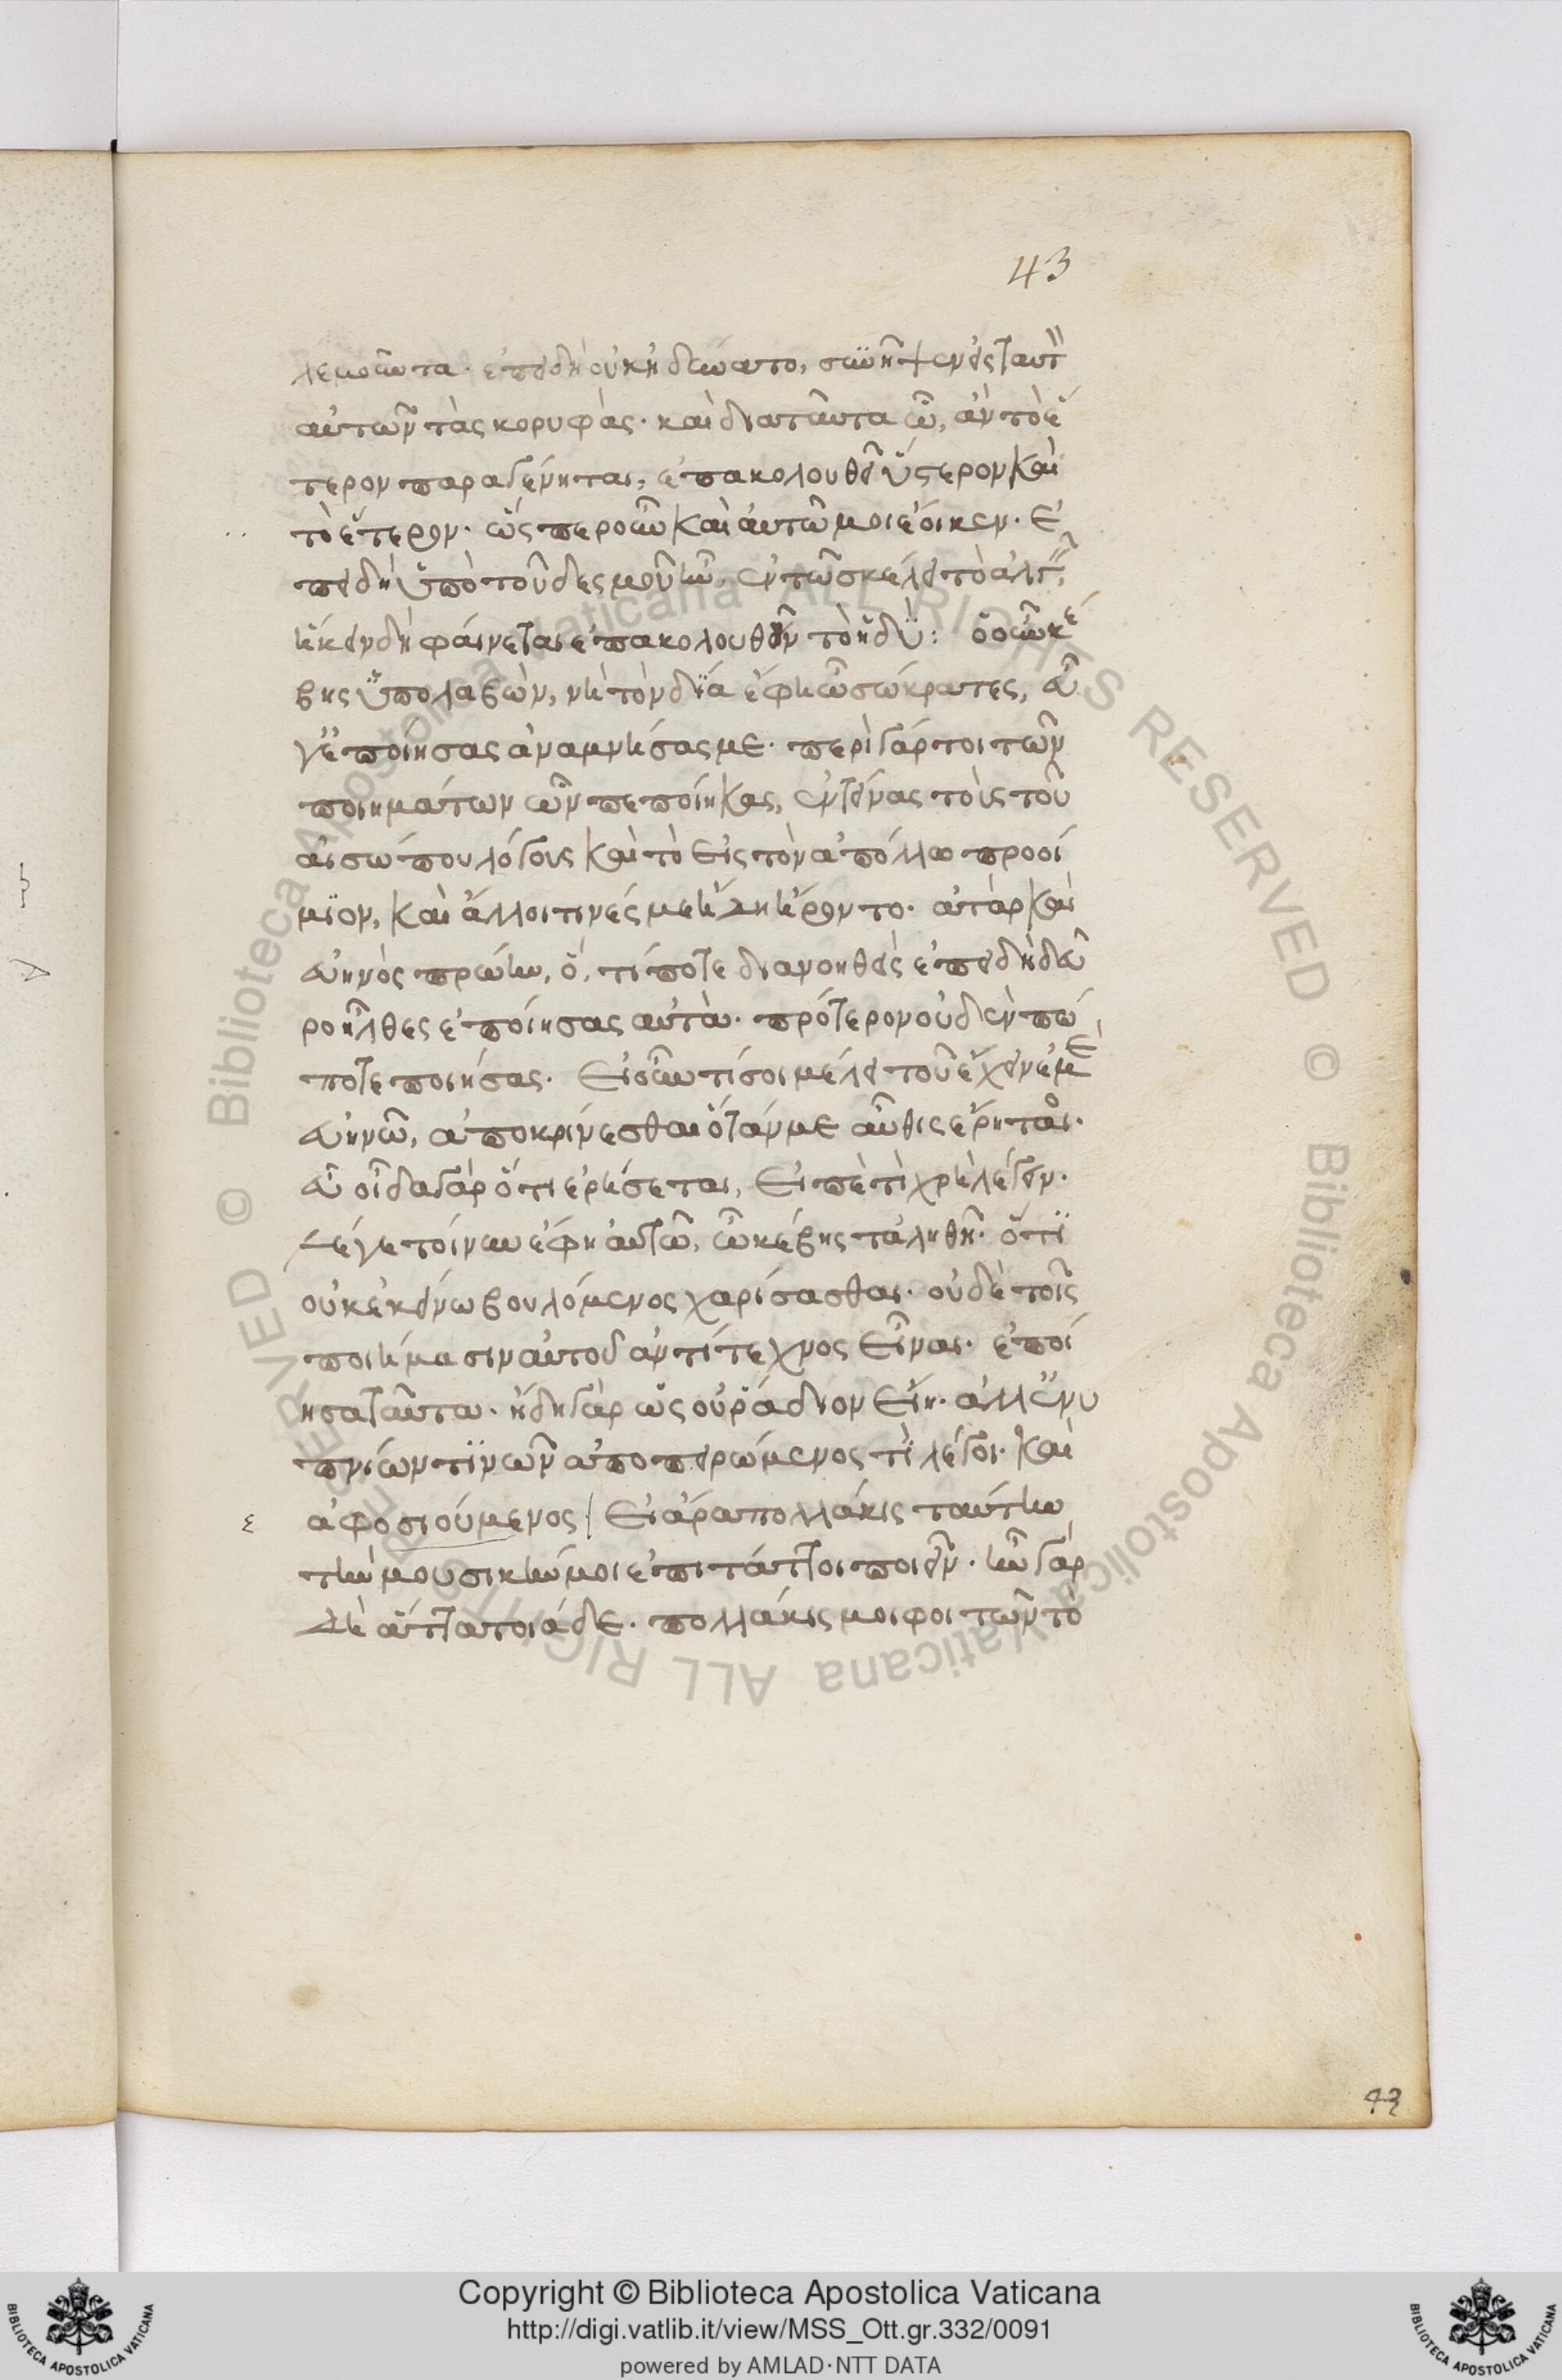 43
λεμοῦντα. ἐπειδὴ οὐκ ἠδύνατο, συνῆψεν εἰς ταυτὸν
αὐτῶν τὰς κορυφάς. καὶ διαταῦτα ὧ, ἂν τὸ ἕ
τερον παραγένηται, ἐπακολουθεῖ ὕστερον καὶ
τὸ ἕτερον. ὥσπερ οὖν καὶ αὐτῶ μοι ἔοικεν. ἐ
πειδὴ ὑπὸ τοῦ δεσμοῦ ἦν, ἐν τῶ σκέλει τὸ ἀλγει
ἥκειν δὴ φαίνεται ἐπακολουθοῦν τὸ ἡδύ: ὁ οὖν κέ
βης ὑπολαβὼν, νὴ τὸν δία ἔφη ὦ σώκρατες, εὖ
γ' ἐποίησας ἀναμνήσας με. περὶ γάρ τοι τῶν
ποιημάτων ὧν πεποίηκας, ἐντείνας τοὺς τοῦ
αἰσώπου λόγους καὶ τὸ εἰς τὸν ἀπόλλω προοί
μιον, καὶ ἄλλοι τινές με ἤδη ἤροντο. ἀτὰρ καὶ
εὔηνος πρώην, ὅ, τί ποτε διανοηθεὶς ἐπειδὴ δεῦ
ρο ἦλθες ἐποίησας αὐτὰ. πρότερον οὐδὲν πώ
ποτε ποιήσας. εἰ οὖν τί σοι μέλει τοῦ ἔχειν ἐμὲ
εὐήνω, ἀποκρίνεσθαι ὅταν με αὖθις ἔρηται.
εὖ οἶδα γὰρ ὅτι ἐρήσεται, εἰπὲ τί χρὴ λέγειν.
λέγε τοίνυν ἔφη αὐτῶ, ὦ κέβης τἀληθῆ. ὅτι
οὐκ ἐκείνω βουλόμενος χαρίσασθαι. οὐδὲ τοῖς
ποιήμασιν αὐτοῦ ἀντίτεχνος εἶναι. ἐποί
ησα ταῦτα. ἤδη γὰρ ὡς οὐ ῥάδιον εἴη. ἀλλ' ἐνυ
πνίων τινῶν ἀποπειρώμενος τί λέγοι. καὶ
ἀφοσιούμενος / εἰ ἄρα πολλάκις ταύτην
τὴν μουσικήν μοι ἐπιτάττοι ποιεῖν. ἦν γὰρ
δὴ ἄττα τοιάδε. πολλάκις μοι φοιτῶν τὸ
43
Copyright © Biblioteca Apostolica Vaticana
http://digi.vatlib.it/view/MSS_Ott.gr.332/0091
powered by AMLAD·NTT DATA